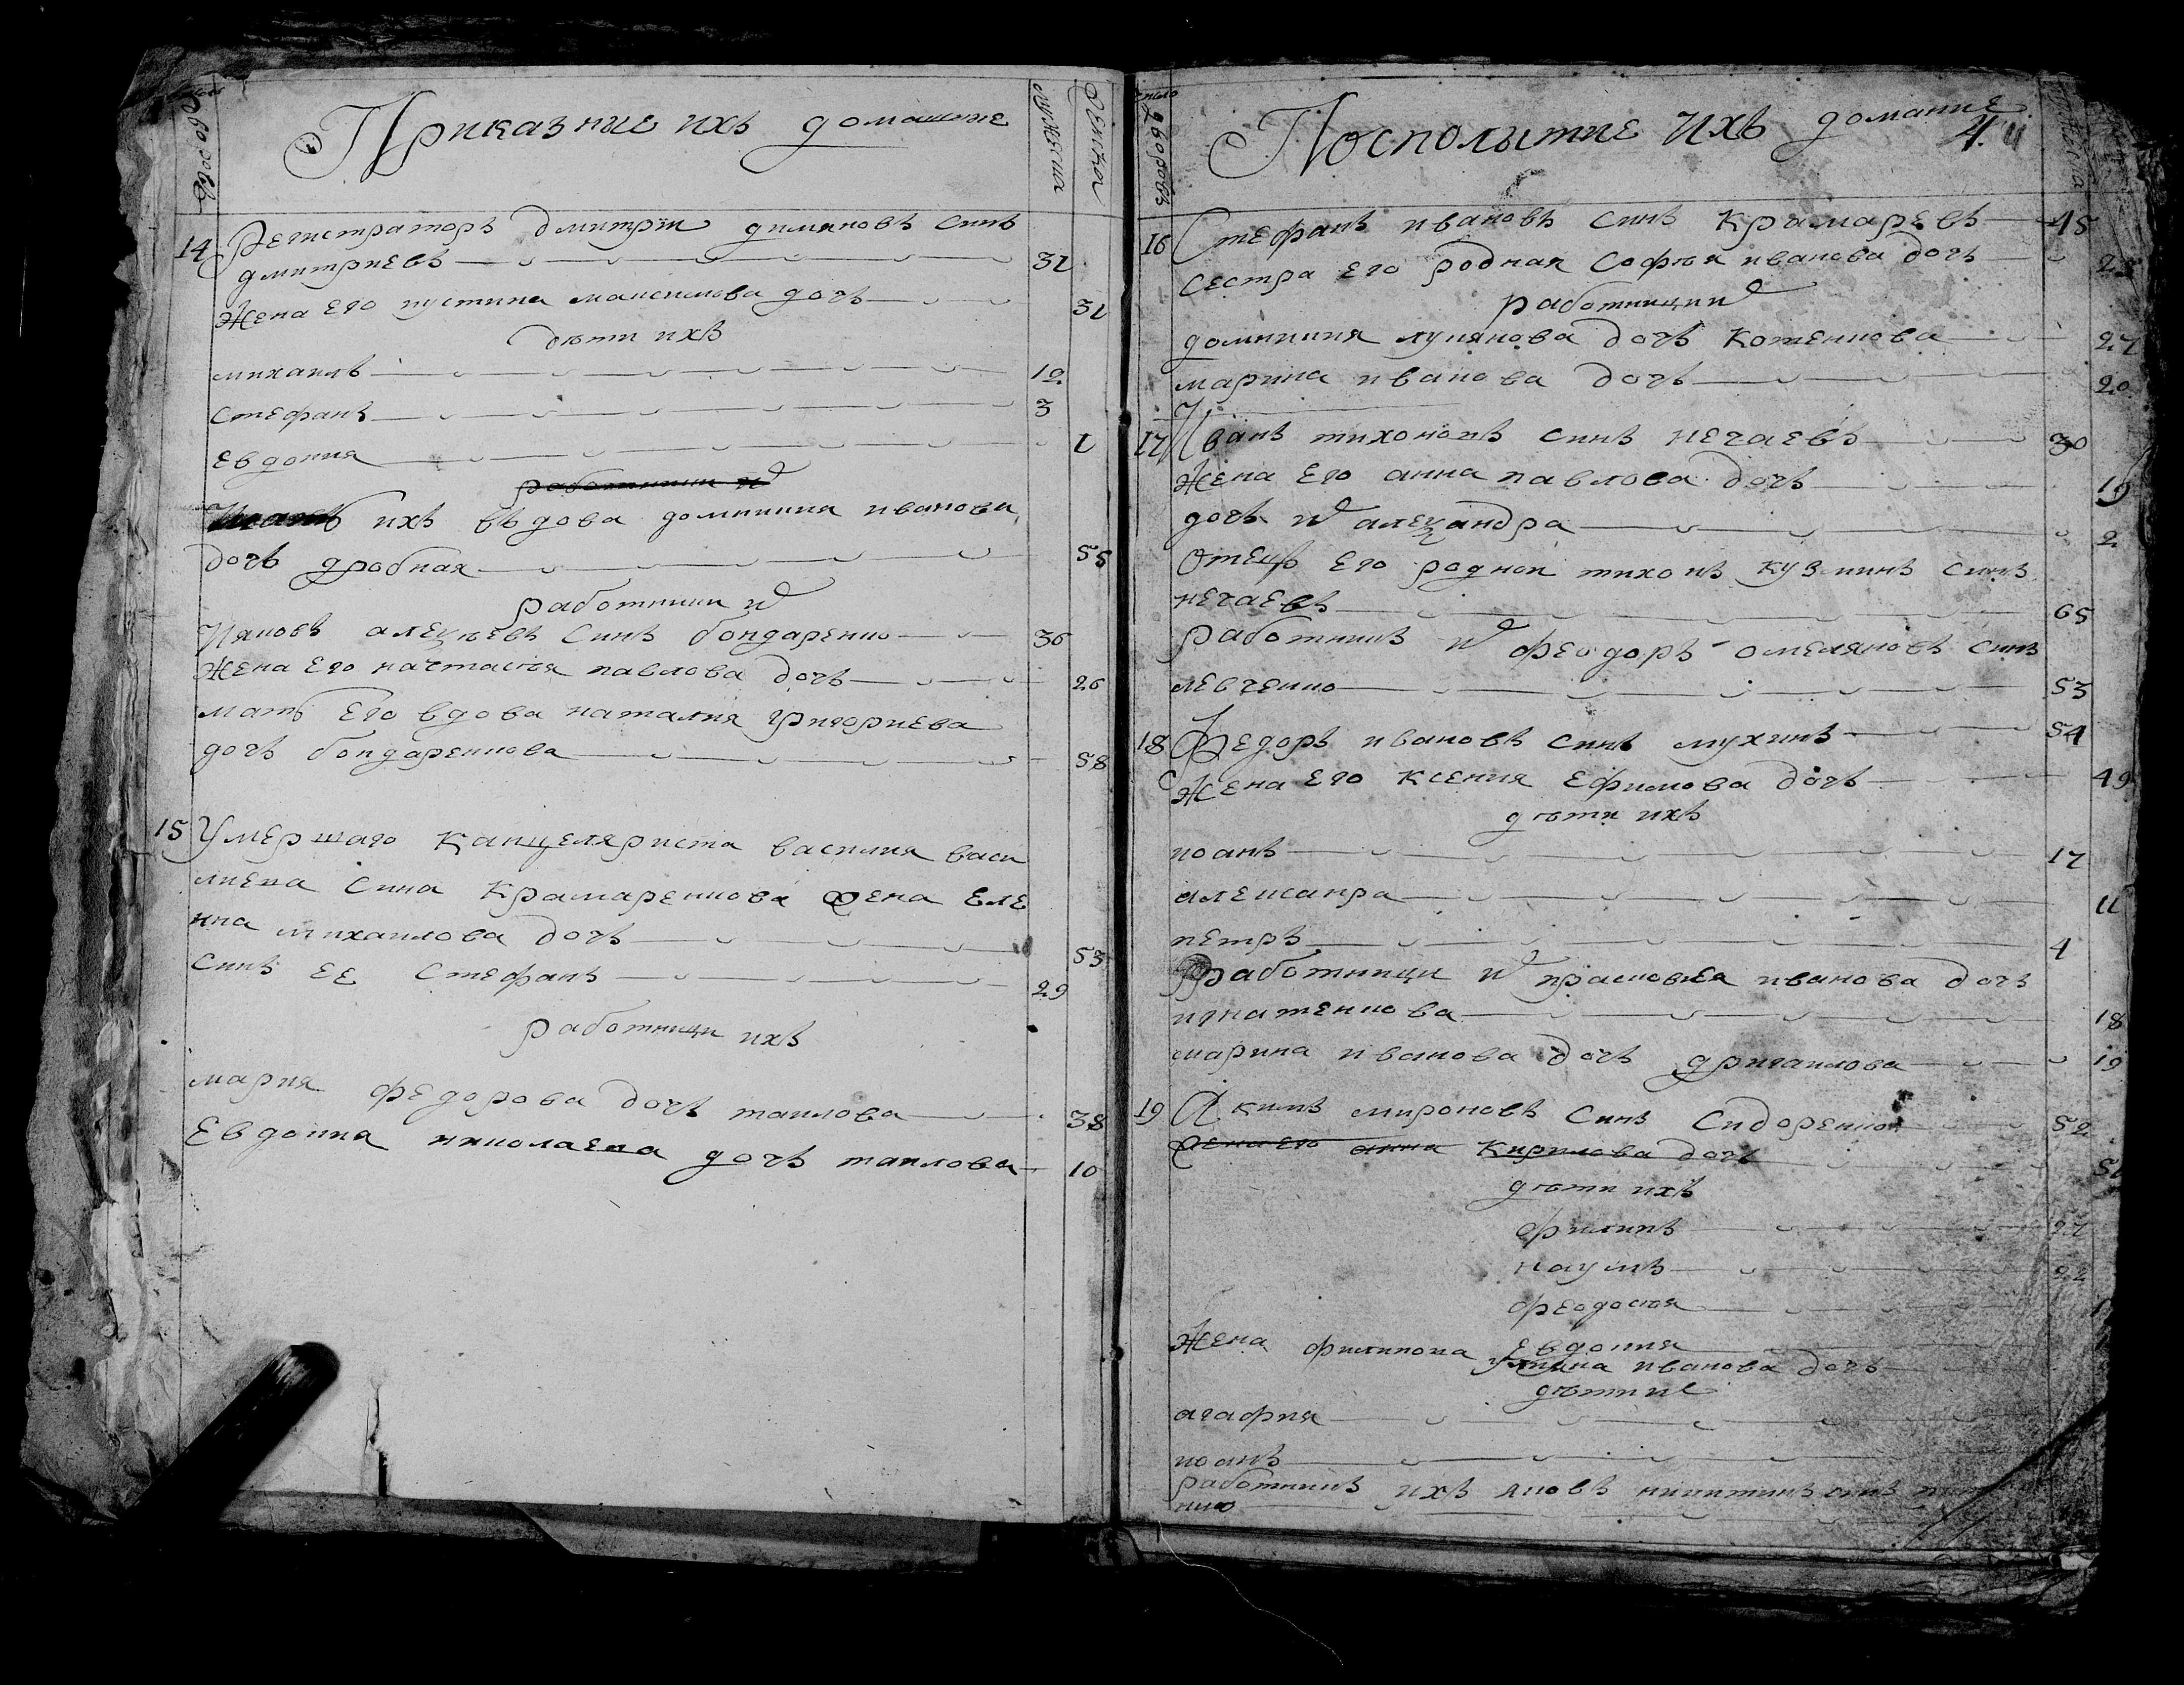 Приказние ихъ домашние
мужеска
женска
14 Регистраторъ дмитрiи димяновъ синъ
дмитриевъ 31
Жена его иустина максимова дочъ 31
дѣти ихъ
михаилъ 10
стефанъ 3
евдокия 1
работници и
ихъ въдова доминикия иванова
дочъ дробная 55
работники и
Ияковъ алеѯѣевъ синъ бондаренко 36
Жена его настасѣя павлова дочъ 26
мать его вдова наталия григориева
дочъ бондаренкова 58
15 Умершаго канцеляриста василия васи
лиева сина крамаренкова жена еле
на михаилова дочъ 53
синъ ее стефанъ 29
работници ихъ
мария федорова дочъ таилова 38
Евдокия николаева дочъ таилова 10
число дворовъ
Посполитие ихъ домашние
4.
16 Стефанъ ивановъ синъ крамаревъ 45
сестра его родная софѣя иванова дочъ 25
работници
доминикия лукянова дочъ котенкова 27
марина иванова дочъ 20
17 Иванъ тихоновъ синъ нечаевъ 30
Жена его анна павлова дочъ 19
дочъ и алеѯандра 2
отецъ его родной тихонъ кузминъ синъ
нечаевъ 65
работникъ и феодоръ омеляновъ синъ
левченко 53
18 Федоръ ивановъ синъ мухинъ 54
Жена его ксения ефимова дочъ 49
дѣти ихъ
иоанъ 17
алексанра 11
петръ 4
Работници и прасковѣя иванова дочъ
игнатенкова 18
марина иванова дочъ дригаилова 19
19 Якимъ мироновъ синъ сидоренко 52
Жена его анна кирилова дочъ
дѣти ихъ
филипъ 27
наумъ 22
феодосѣя
Жена филипова евдокия
иванова дочъ
дѣти и
агафия
иоанъ
работникъ ихъ яковъ никитинъ синъ
нко